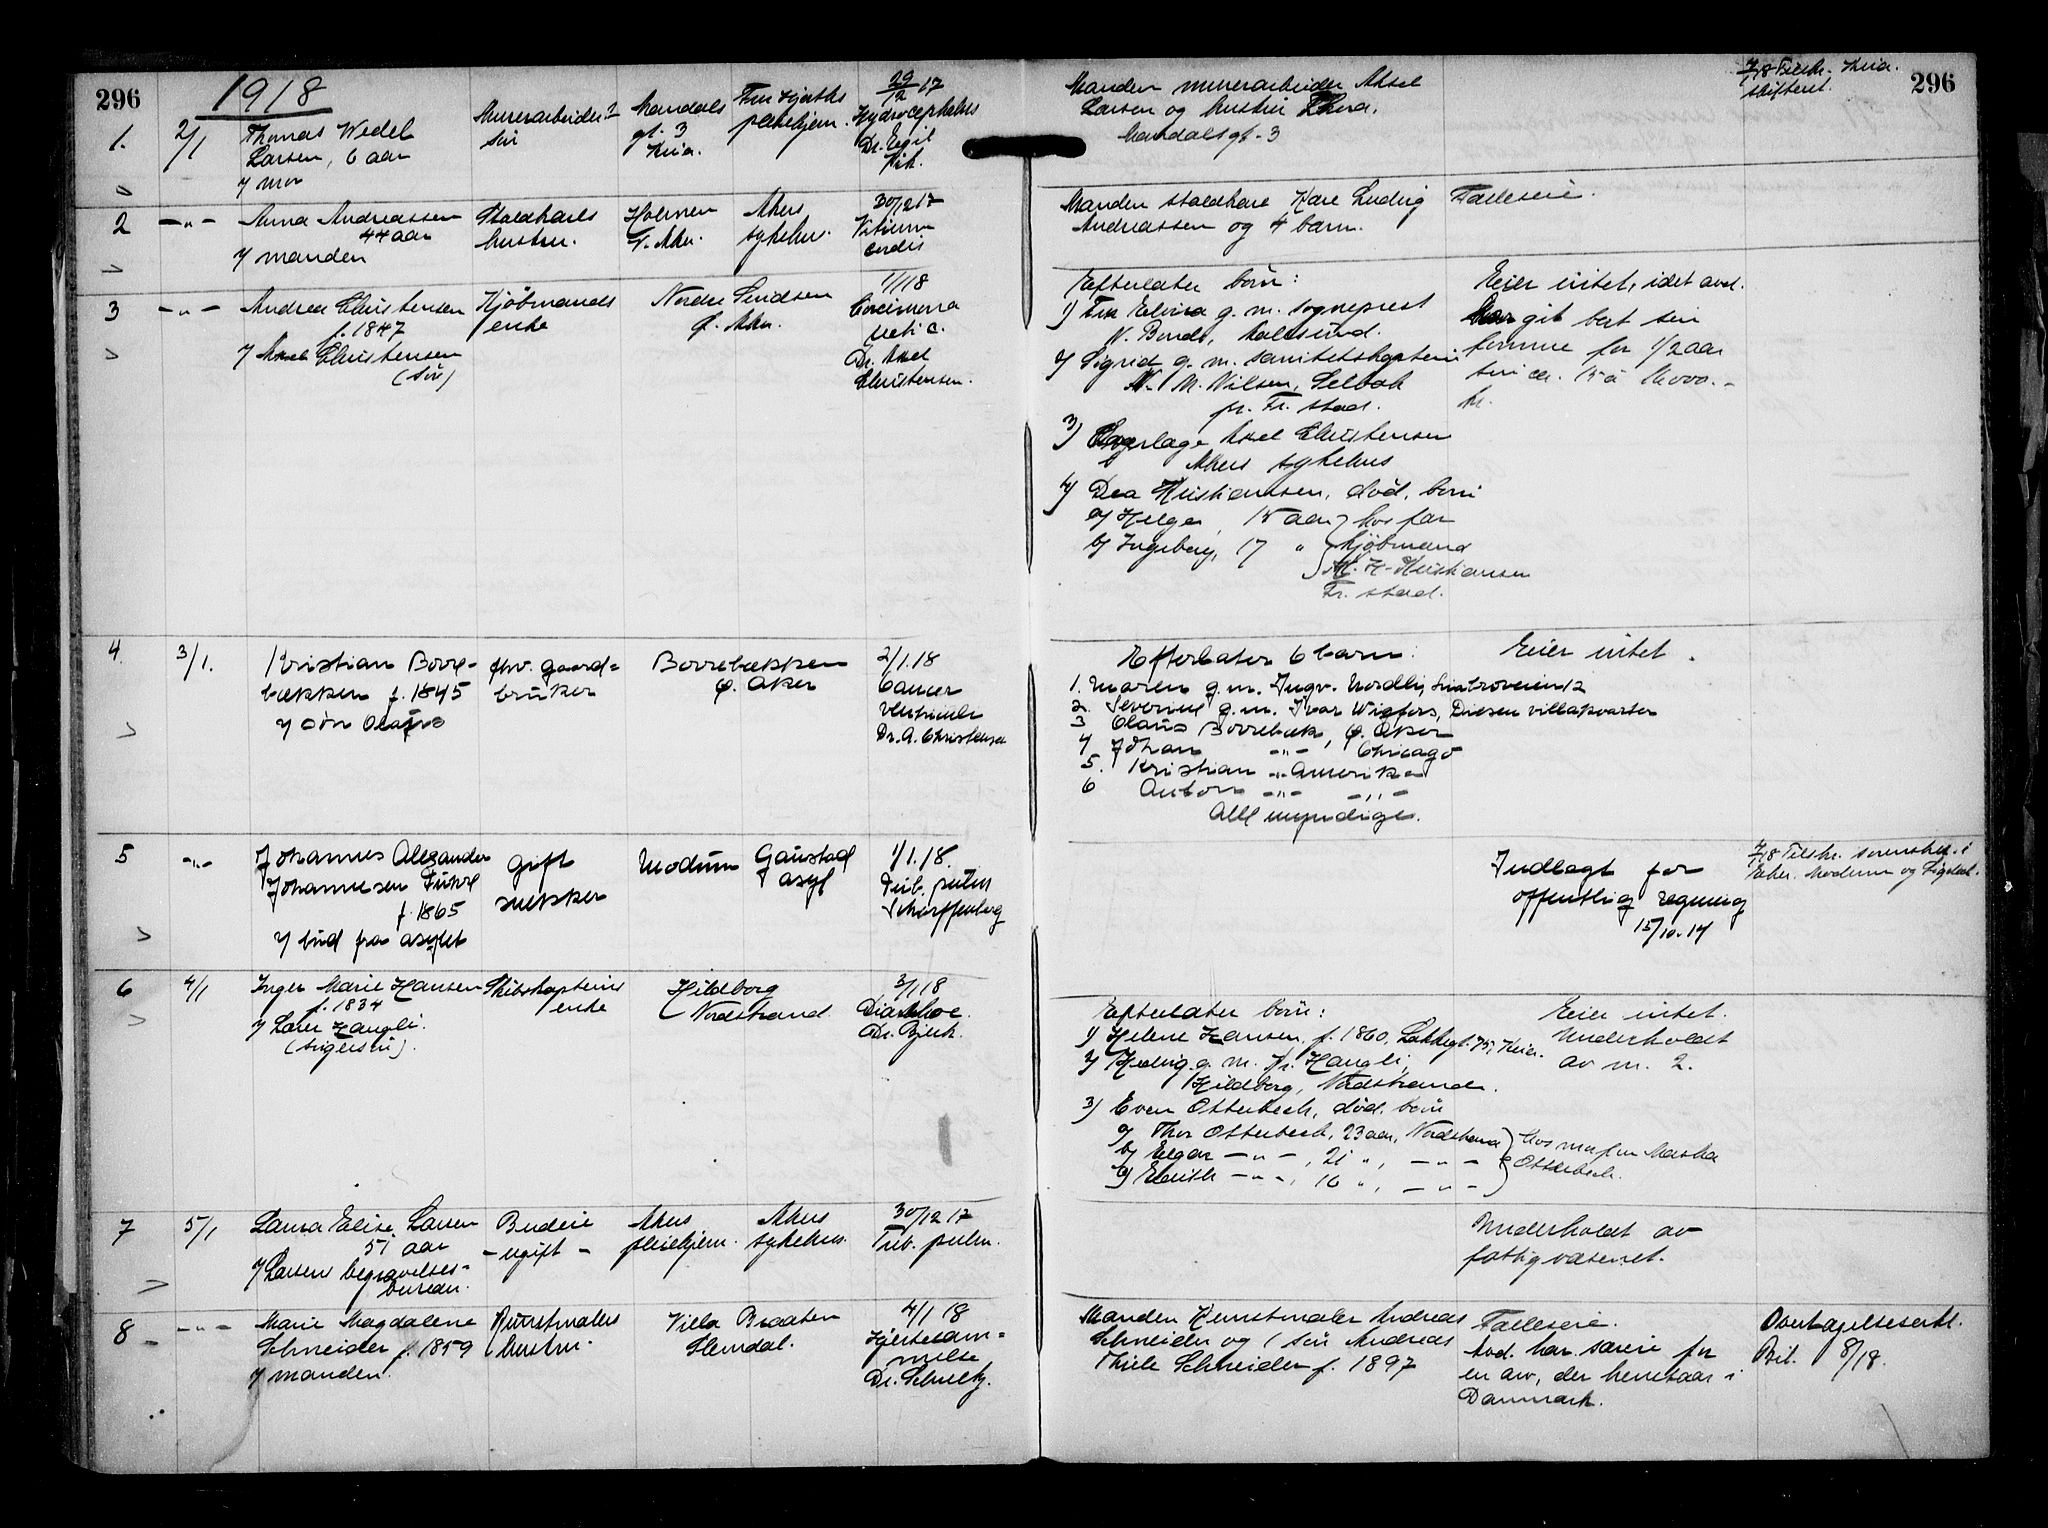 296
1918
296
1.
2/1
Thomas Wedel
Larsen, 6 aar
y mor
Murerarbeiders
søn
Mandals
gt. 3
Kria.
Fru Hjorths
pleiehjem.
29/12 17
Hydrocephalus
Dr. Egil
Manden murerarbeider Aksel
Larsen og hustru Thora,
Mandalsgt. 3
4/18 Tilskr. Kria.
skifteret.
2
-"-
Anna Andreassen
44 aar
y manden
Staldkarls
hustru.
Holmen
V. Aker.
Akers
sykehus.
30/12 17
Vitium
cordis
Manden staldkarl Karl Ludvig
Andreassen og 4 barn.
Fælleseie.
3
-"-
Andrea Christensen
f. 1847
y Axel Christensen
(søn)
Kjøbmands
enke
Nordre
Ø. Aker.
1/1 18
Dr. Axel
Christensen.
Efterlater børn:
1) Fru Elvira g. m. sogneprest
N. Bonde, Aalesund.
2) Sigrid g. m. sanitetskaptein
N. M. Nilsen, Selbak
pr. Fr. stad.
3) Overlæge Axel Christensen
Akers sykehus
4) Dea Kristiansen, død, børn
a) Helge, 15 aar } hos far
b) Ingeborg, 17 " } kjøbmand
M. H. Kristiansen
Fr. stad.
Eier intet, idet avd.
har git bort sin
formue for 1/2 aar
siden ca. 15 à 16000.-
kr.
4
3/1.
Kristian Borre-
bækken f. 1845
y søn Olaus
fhv. gaard-
bruker
Borrebækken
Ø. Aker
2/1.18
Cancer
ventriculi
Dr. A. Christensen
Efterlater 6 barn:
1. Maren g. m. Ingv. Nordli, Smutroveien 12
2. Severine g. m. Ivar Wigfors, Disen villakvarter
3 Olaus Borrebæk, Ø. Aker
4 Johan -"- Chicago
5. Kristian -"- Amerika
6 Anton -"- -"-
Alle myndige.
Eier intet.
5
-"-
Johannes Alexander
Johannesen
f. 1865
y bud fra asylet
gift
snekker
Modum
Gaustad
asyl
1/1.18.
Tub. pulm
Scharffenberg
Indlagt for
offentlig regning
15/10-17
4/18 Tilskr. sorenskr. i
Eker, Modum og Sigdal.
6
4/1
Inger Marie Hansen
f. 1834
y Lars Haugli.
(svigersøn).
Skibskapteins
enke
Hildborg
Nordstrand
3/1 18
Diarrhoe.
Dr. Bjerk.
Efterlater børn:
1) Helene Hansen, f. 1860, Lakkegt. 75, Kria.
2) Hedvig g. m. Kr. Haugli,
Hildborg, Nordstrand.
3) Even Otterbech, død. børn
a) Thor Otterbech, 23 aar, Nordstrand } hos mor fru Martha
b) Edgar -"-, 21 ", -"- } Otterbech.
c) Edith -"-, 16 ", -"-
Eier intet.
Underholdt
av nr. 2.
7
5/1
Laura Elise Larsen
51 aar
y Larsens begravelses-
bureau.
Budeie
- ugift -
Akers
pleiehjem.
Akers
sykehus.
30/12 17
Tub. pulm.
Underholdt av
fattigvæsenet.
8
-"-
Marie Magdalene
Schneider f. 1859
y manden.
Kunstmalers
hustru.
Villa Braaten
Slemdal.
4/1 18
Hjertelam-
melse
Dr. Schultz.
Manden Kunstmaler Andreas
Schneider og 1 søn Andreas
Thiele Schneider f. 1897
Fælleseie.
Avd. har særeie for
en arv, der henstaar i
Danmark.
Overtagelseserkl.
Bil. 8/18.